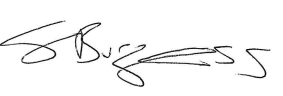 S Burgess